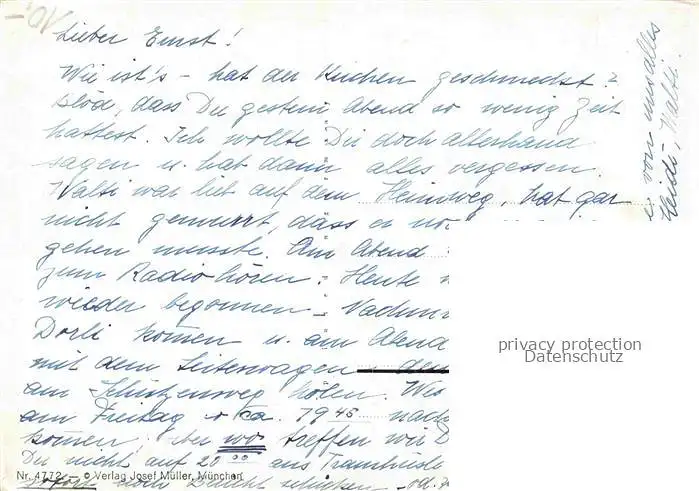 Lieber Ernst!
Wie ist's – hat der Kuchen geschmeckt?
Blöd, dass Du gestern Abend so wenig Zeit
hattest. Ich wollte Dir doch allerhand
sagen u. hat dann alles vergessen.
Walti war lieb auf dem Heimweg, hat gar
nicht gemurrt, dass er no
gehen musste. Am Abend
zum Radio hören. Heute
wieder begonnen – Nachm
Dorli kommen u. am Abend
mit dem Leiterwagen
am Schützenweg holen. We
am Freitag ca. 19 45 nach
kommen. wo treffen wir D
Du nicht auf 20 00 ans Tramhüsli
sofort noch Bericht schicken – od.
von uns alles
Heidi, Walti.
privacy protection
Datenschutz
Nr. 4772 – © Verlag Josef Müller, München